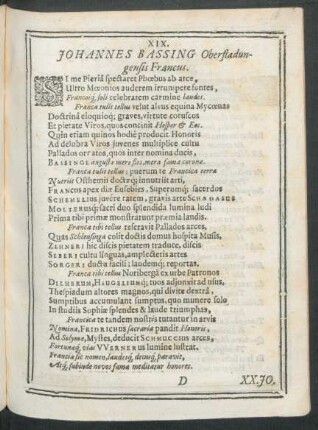 XIX.
JOHANNES BASSING Oberstadun-
gensis Francus.
SI me Pieriâ spectaret Phœbus ab arce,
Ultro Mæonios auderem irrumpere fontes,
Francoq́, soli celebratem carmine laudes.
Franca tulit tellus velut alvus equina Mycœnas
Doctrinâ eloquioq; graves, virtute cotuscos
Et pietate Viros, quos continit Hesper & Eos.
Quin etiam quinos hodiè producit Honoris
Ad delubra Viros juvenes multiplice cultu
Palladus ornatos, quos inter nomina ducis,
BASINGE
Franca tulit tellus; puerum te Francica terra
Nutriit Osthemii doctrq; innutriit arti,
FRANCUS apex diæ Eusebies, Superumq; sacerdos
SCHEMELIUS juvêre ratem, gravis arte SCHADÆUS
MOLZERUMq; sacri duo splendida lumina ludi
Prima tibi primæ monstrarunt præmia landis.
Franca tibi tellus reseravit Palladios arces,
Quas Schleusinga colit doctis domus hospita Musis,
ZEHNERI hic discis pietatem traduce, discis
SEBERI cultu linguas, amplecteris artes
SORGERI docta facili; laudemq; reportas.
Franca tibi tellus Noribergâ ex urbe Patronos
DILHERUM, HAUGELIUMq; tuos adjunxit ad usus,
Thespiadum altores magnos, qui divite dextrâ
Sumptibus accumulant sumptus, quo munere solo
In studiis Sophiæ splendes & laude triumphas,
Franciæ te tandem nostris tutantur in arvis
Nomina, FRIDRICHUS sacraria pandit Honoris,
Ad Solyma, Mystes, deducit SCHNUCCIUS arces,
Fortunæq́, vias VVERNERUS lumine lustrat.
Francia sic nomen, laudesq́, decusq́, paravit,
Atq́, subinde novos famæ meditatur honores.
D
XX. JO.